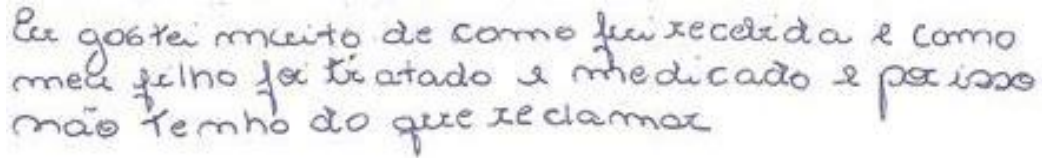 Eu gostei muito de como fui recebida e como
meu filho foi tratado e medicado e por isso
não tenho do que reclamar